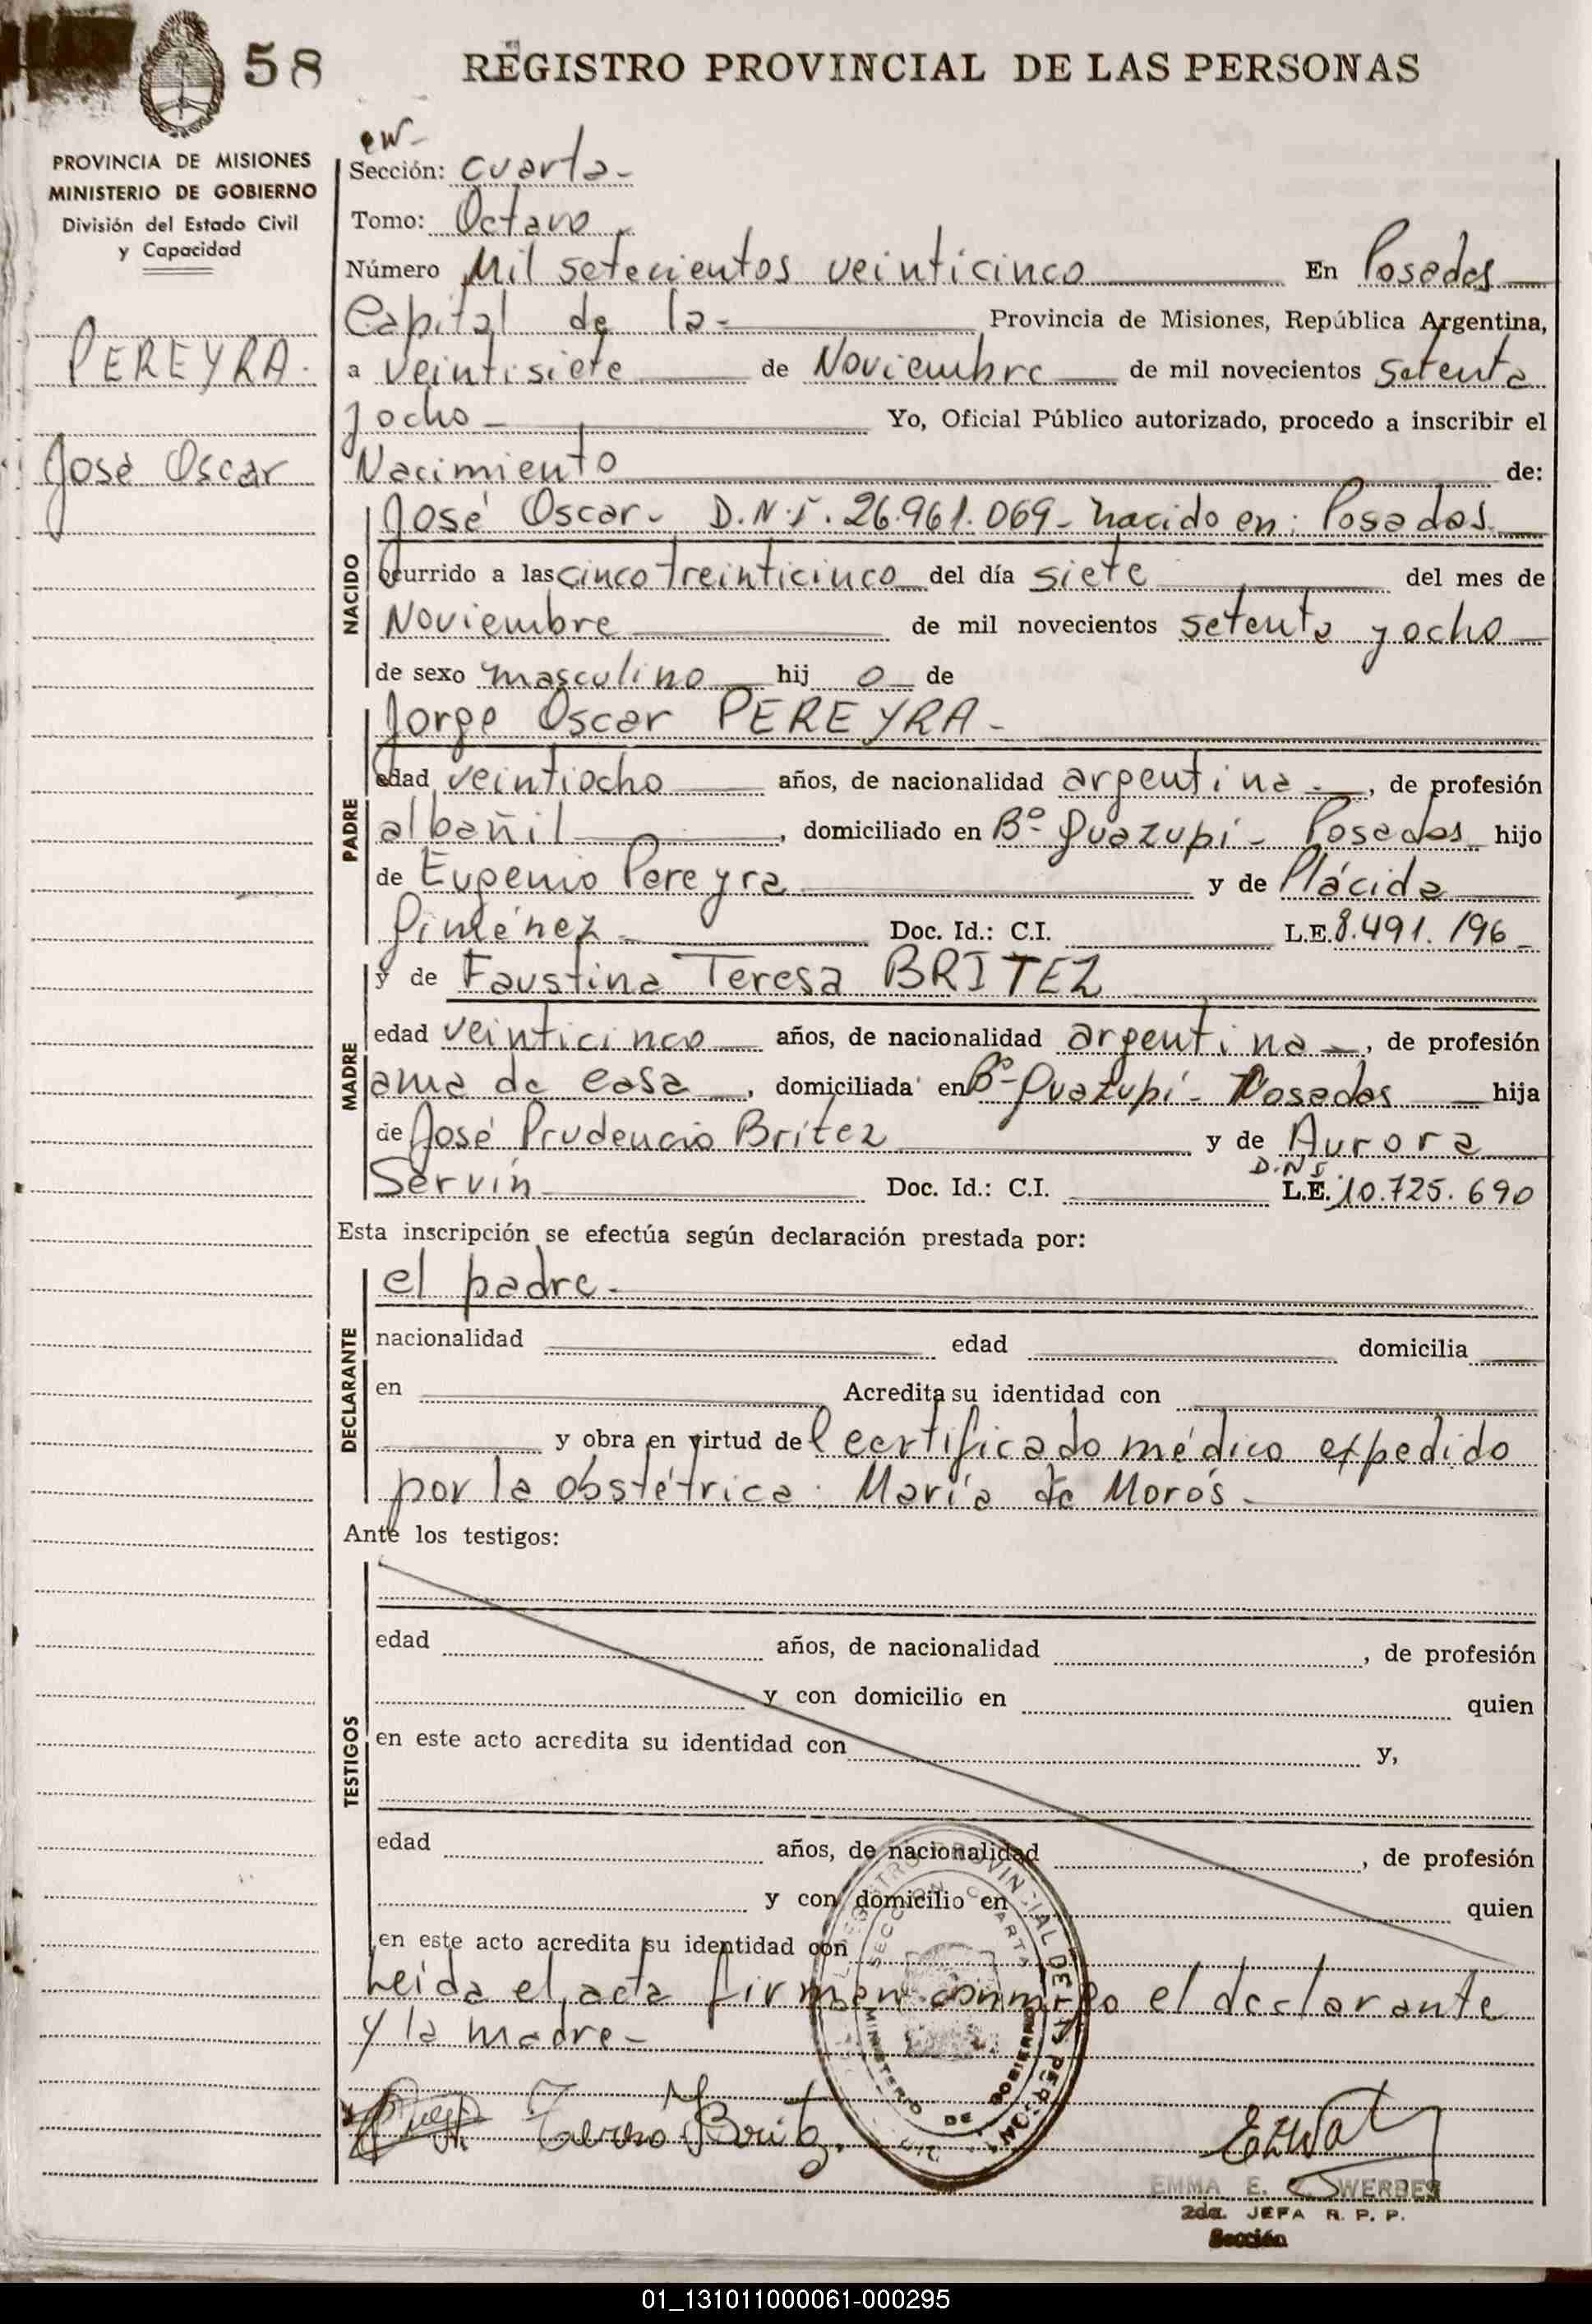 58 REGISTRO PROVINCIAL DE LAS PERSONAS
PROVINCIA DE MISIONES
MINISTERIO DE GOBIERNO
División del Estado Civil
y Capacidad
PEREYRA.
José Oscar
Sección: cuarta-
Tomo: Octavo
Número Mil setecientos veinticinco En Posadas
Capital de la- Provincia de Misiones, República Argentina,
a veintisiete de Noviembre de mil novecientos setenta
y ocho- Yo, Oficial Público autorizado, procedo a inscribir el
Nacimiento de:
NACIDO
José Oscar- D.N.I. 26.961.069- nacido en: Posadas
ocurrido a las cinco treinticinco del día siete del mes de
Noviembre de mil novecientos setenta y ocho
de sexo masculino hij o de
PADRE
Jorge Oscar PEREYRA-
edad veintiocho años, de nacionalidad argentina-, de profesión
albañil, domiciliado en Bº- Guazupí- Posadas hijo
de Eugenio Pereyra y de Plácida
Giménez- Doc. Id.: C.I. L.E. 8.491.196-
MADRE
y de Faustina Teresa BRITEZ
edad veinticinco años, de nacionalidad argentina-, de profesión
ama de casa, domiciliada en Bº- Guazupí- Posadas hija
de José Prudencio Britez y de Aurora
Servín Doc. Id.: C.I. D.N.I. L.E. 10.725.690
Esta inscripción se efectúa según declaración prestada por:
DECLARANTE
el padre-
nacionalidad edad domicilia
en Acredita su identidad con
y obra en virtud del certificado médico expedido
por la obstétrica: María de Morós-
Ante los testigos:
TESTIGOS
edad años, de nacionalidad , de profesión
y con domicilio en quien
en este acto acredita su identidad con y,
edad años, de nacionalidad , de profesión
y con domicilio en quien
en este acto acredita su identidad con
Leída el acta firman conmigo el declarante
y la madre-
REGISTRO PROVINCIAL DE LAS PERSONAS
SECCION CUARTA
MINISTERIO DE GOBIERNO
EMMA E. WERBES
2da. JEFA R. P. P.
Sección
01_131011000061-000295